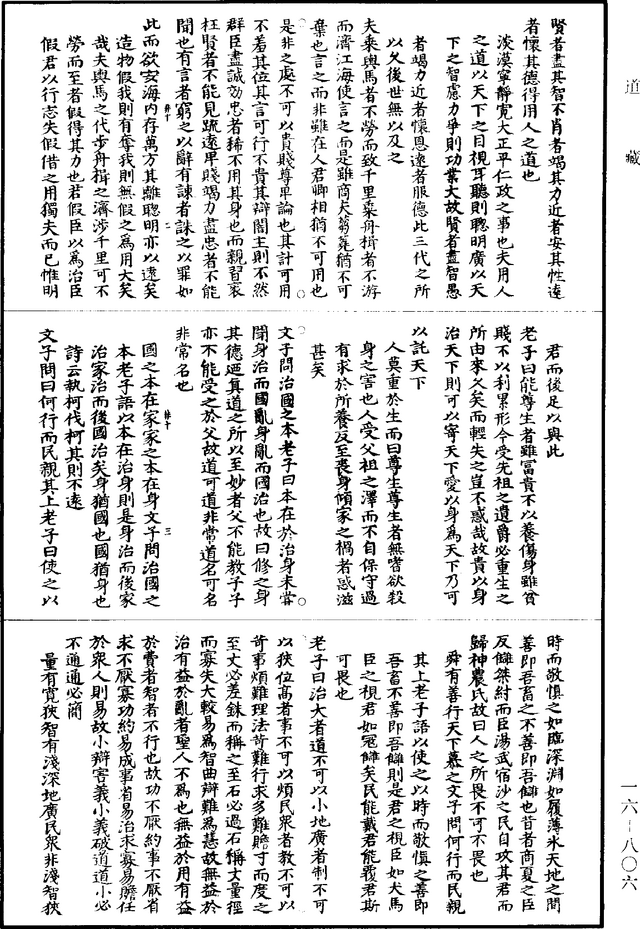 道藏
賢者盡其智不肖者竭其力近者安其性遠
者懷其德得用人之道也
淡漠寧靜寬大正平仁政之事也夫用人
之道以天下之目視耳聽則聰明廣以天
下之智慮力爭則功業大故賢者盡智愚
者竭力近者懷恩遠者服德此三代之所
以久後世無以及之
夫乘輿馬者不勞而致千里乘舟楫者不游
而濟江海使言之而是雖商夫芻蕘猶不可
棄也言之而非雖在人君卿相猶不可用也
是非之處不可以貴賤尊卑論也其計可用
不羞其位其言可行不貴其辯闇主則不然
群臣盡誠効忠者稀不用其身也而親習衺
枉賢者不能見疏遠卑賤竭力盡忠者不能
聞也有言者窮之以辭有諫者誅之以罪如
此而欲安海內存萬方其離聰明亦以遠矣
二
造物假我則有奪我則無假之為用大矣
哉夫輿馬之代步舟楫之濟涉千里可不
勞而至者假得其力也若假臣以為治臣
假君以行志失假借之用獨夫而已惟明
君而後足以與此
老子曰能尊生者雖富貴不以養傷身雖貧
賤不以利累形今受先祖之遺爵必重生之
所由來久矣而輕失之豈不惑哉故貴以身
治天下則可以寄天下愛以身為天下乃可
以託天下
人莫重於生而曰尊生尊生者無嗜欲殺
身之害也人受父祖之澤而不自保守過
有求於所養反至喪身傾家之禍者惑滋
甚矣
文子問治國之本老子曰本在於治身未嘗
聞身治而國亂身亂而國治也故曰修之身
其德廼真道之所以至妙者父不能教子子
亦不能受之於父故道可道非常道名可名
非常名也
三
國之本在家家之本在身文子問治國之
本老子語以本在治身則是身治而後家
治家治而後國治矣身猶國也國猶身也
詩云執柯伐柯其則不遠
文子問曰何行而民親其上老子曰使之以
時而敬慎之如臨深淵如履薄氷天地之間
善即吾畜之不善即吾讎也昔者商夏之臣
反讎桀紂而臣湯武宿沙之民自攻其君而
歸神農氏故曰人之所畏不可不畏也
舜有善行天下慕之文子問何行而民親
其上老子語以使之以時而敬慎之善即
吾畜不善即吾讎則是君之視臣如犬馬
臣之視君如寇讎矣民能戴君能覆君斯
可畏也
老子曰治大者道不可以小地廣者制不可
以狹位高者事不可以煩民衆者教不可以
苛事煩難理法苛難行求多難贍寸而度之
至丈必差銖而稱之至石必過石稱丈量徑
而寡失大較易為智曲辯難為慧故無益於
治有益於亂者聖人不為也無益於用有益
於費者智者不行也故功不厭約事不厭省
求不厭寡功約易成事省易治求寡易贍任
於衆人則易故小辯害義小義破道道小必
不通通必簡
量有寬狹智有淺深地廣民衆非淺智狹
一六–八〇六